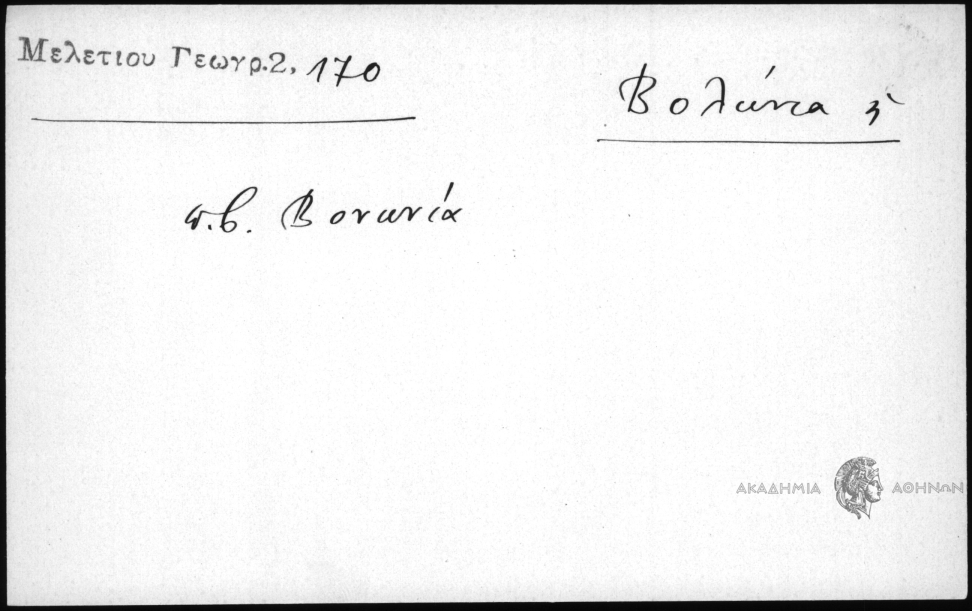 Μελετίου Γεωγρ.2, 170
Βολώνια ἡ
π.β. Βονωνία
ΑΚΑΔΗΜΙΑ ΑΘΗΝΩΝ